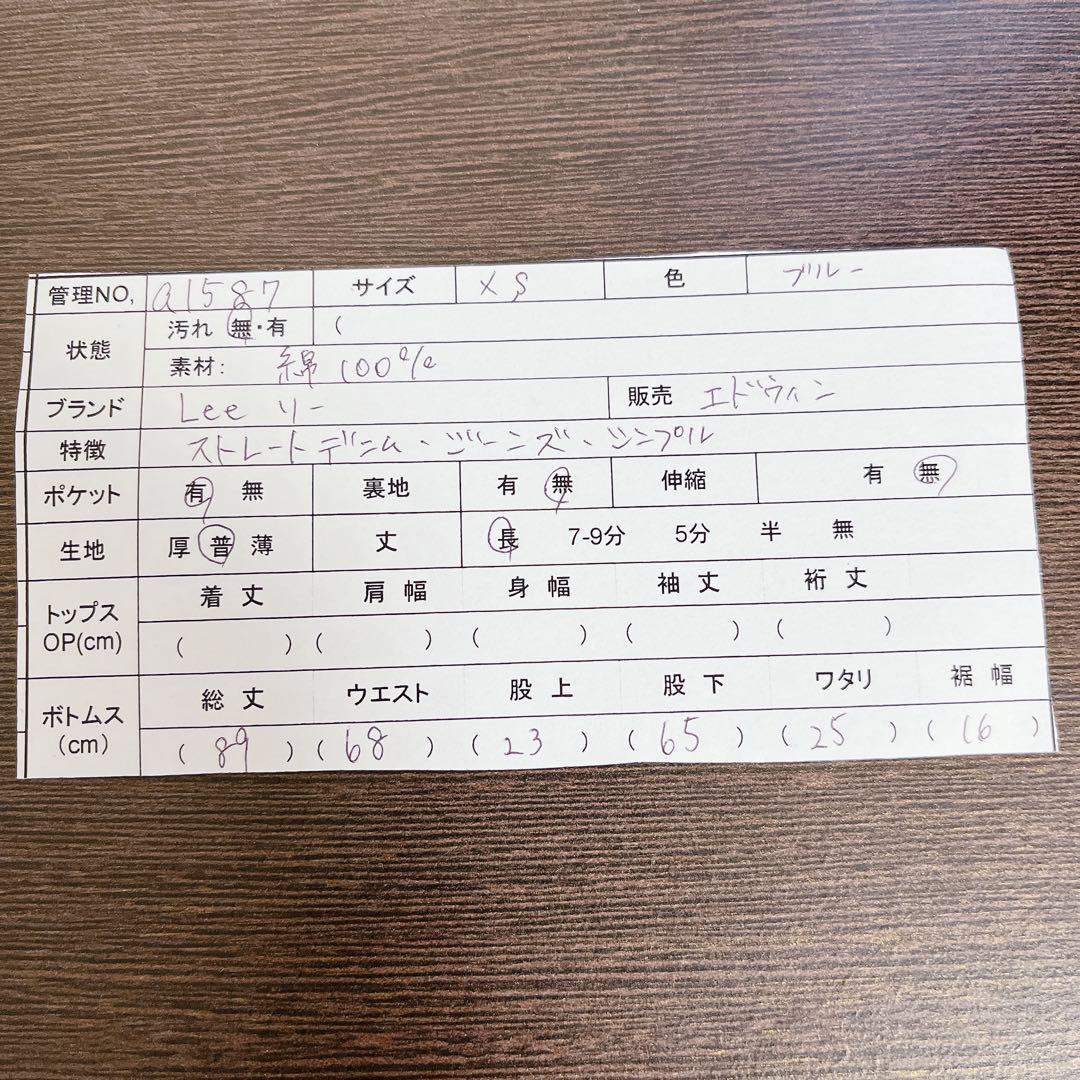 管理NO, a1587 サイズ XS 色 ブルー
状態 汚れ 無・有 (
素材: 綿 100%
ブランド Lee リー 販売 エドウィン
特徴 ストレートデニム、ジーンズ、シンプル
ポケット 有 無 裏地 有 無 伸縮 有 無
生地 厚 普 薄 丈 長 7-9分 5分 半 無
トップス OP(cm) 着丈 肩幅 身幅 袖丈 裄丈
( ) ( ) ( ) ( ) ( )
ボトムス (cm) 総丈 ウエスト 股上 股下 ワタリ 裾幅
( 89 ) ( 68 ) ( 23 ) ( 65 ) ( 25 ) ( 16 )